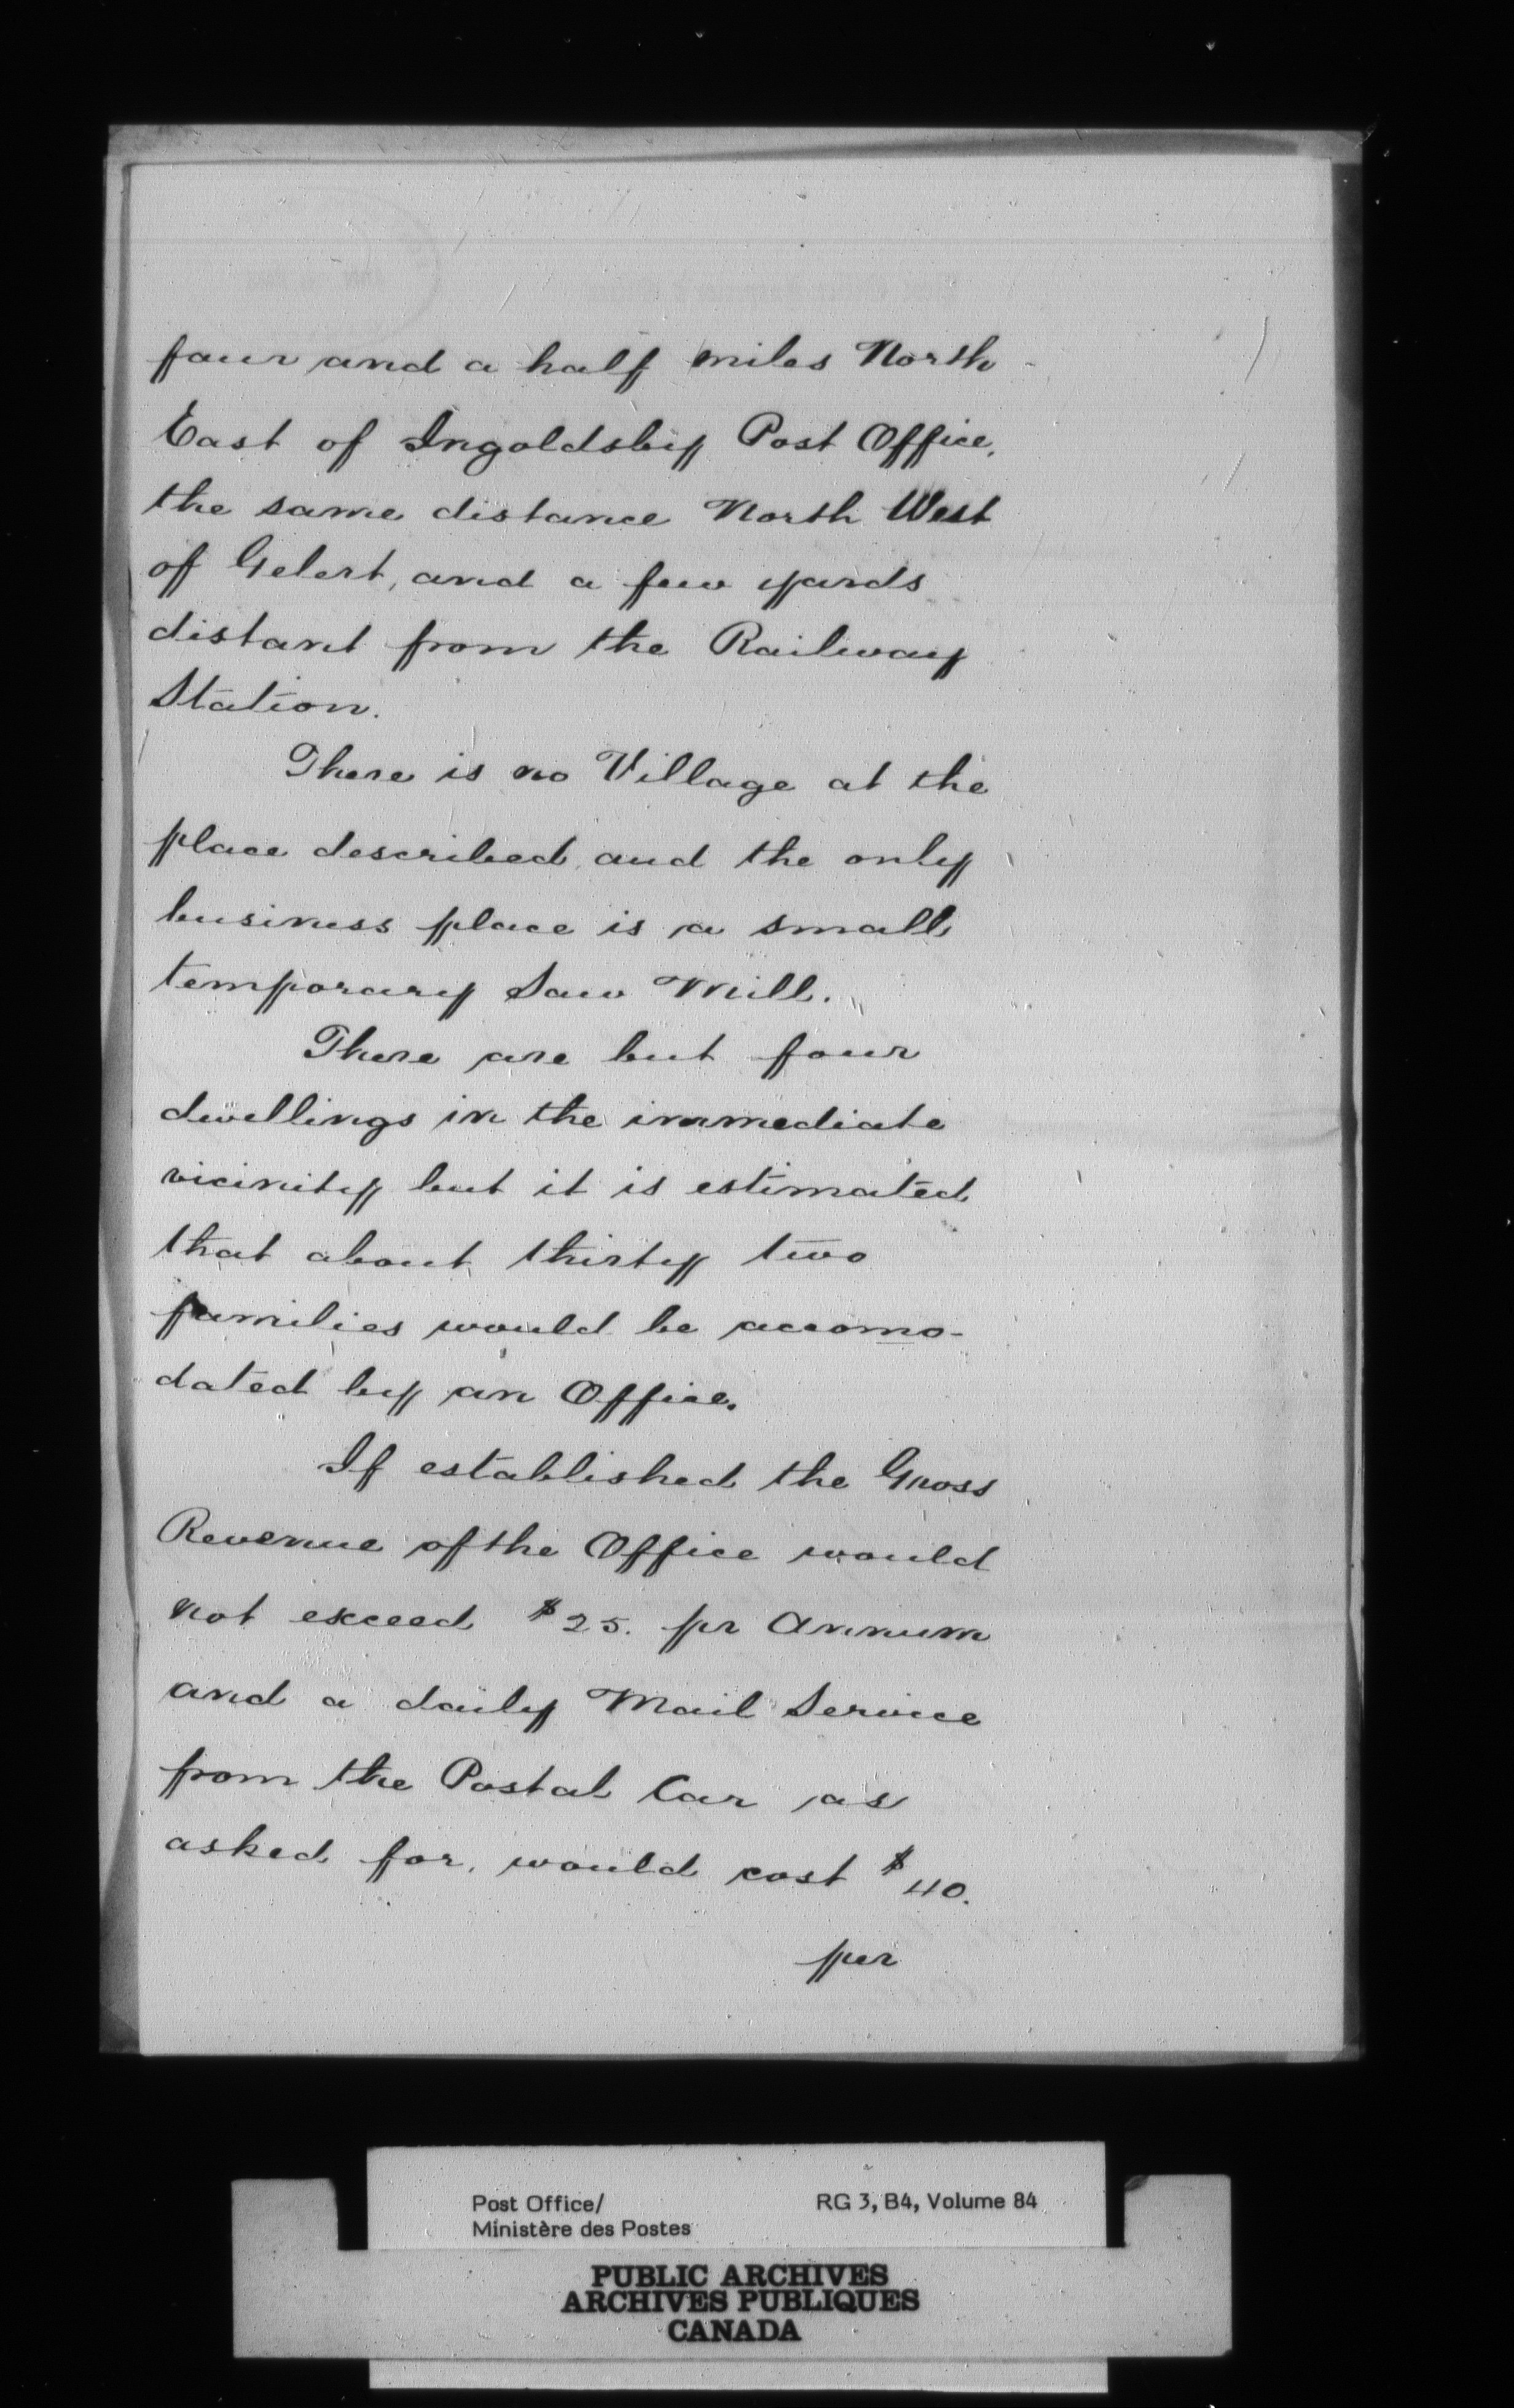 four and a half miles North
East of Ingoldsby Post Office,
the same distance North West
of Gelert, and a few yards
distant from the Railway
Station.
There is no Village at the
place described, and the only
business place is a small
temporary Saw Mill.
There are but four
dwellings in the immediate
vicinity but it is estimated
that about thirty two
families would be accomo-
dated by an Office.
If established the Gross
Revenue of the Office would
not exceed $25. pr Annum
and a daily Mail Service
from the Postal Car as
asked for, would cost $40.
per
Post Office/
Ministère des Postes
RG 3, B4, Volume 84
PUBLIC ARCHIVES
ARCHIVES PUBLIQUES
CANADA